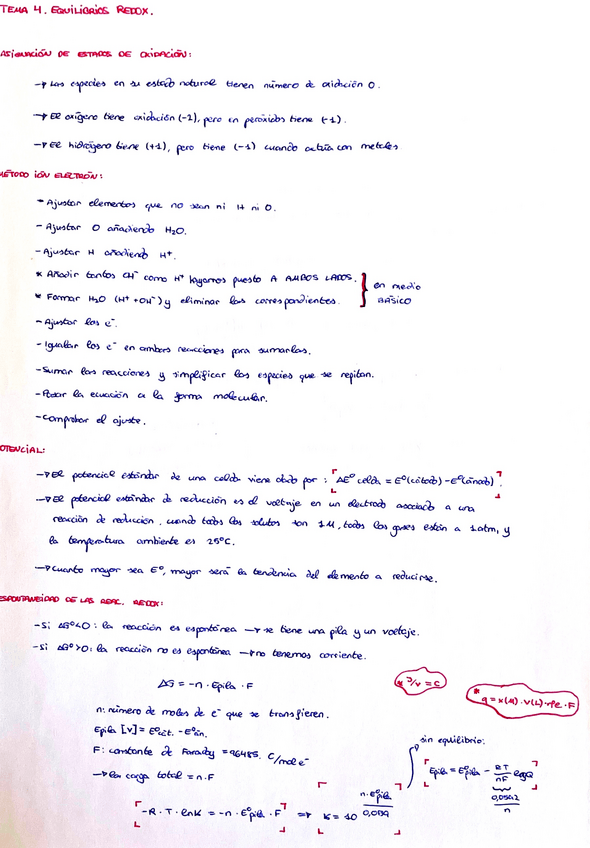 TEMA 4. EQUILIBRIOS REDOX.
ASIGNACIÓN DE ESTADOS DE OXIDACIÓN:
→ Las especies en su estado natural tienen número de oxidación 0.
→ El oxígeno tiene oxidación (-2), pero en peróxidos tiene (-1).
→ El hidrógeno tiene (+1), pero tiene (-1) cuando actúa con metales
MÉTODO IÓN ELECTRÓN:
- Ajustar elementos que no sean ni H ni O.
- Ajustar O añadiendo H₂O.
- Ajustar H añadiendo H⁺.
* Añadir tantos OH⁻ como H⁺ hayamos puesto A AMBOS LADOS. } en medio
* Formar H₂O (H⁺+OH⁻) y eliminar los correspondientes. } BÁSICO
- Ajustar los e⁻.
- Igualar los e⁻ en ambas reacciones para sumarlas.
- Sumar las reacciones y simplificar las especies que se repitan.
- Pasar la ecuación a la forma molecular.
- Comprobar el ajuste.
OTENCIAL:
→ El potencial estándar de una celda viene dado por: ΔE° celda = E°(cátodo) - E°(ánodo).
→ El potencial estándar de reducción es el voltaje en un electrodo asociado a una
reacción de reducción, cuando todos los solutos son 1M, todos los gases están a 1atm, y
la temperatura ambiente es 25°C.
→ Cuanto mayor sea E°, mayor será la tendencia del elemento a reducirse.
ESPONTANEIDAD DE LAS REAC. REDOX:
- Si ΔG°<0: la reacción es espontánea → se tiene una pila y un voltaje.
- Si ΔG°>0: la reacción no es espontánea → no tenemos corriente.
ΔG = -n · Epila · F
* J/V = C
* q = x(M) · V(L) · nºe · F
n: número de moles de e⁻ que se transfieren.
Epila [V] = E°cát. - E°án.
F: constante de Faraday = 96485. C/mol e⁻
→ la carga total = n·F
sin equilibrio:
Epila = E°pila - RT/nF logQ
0,0592/n
-R · T · lnK = -n · E°pila · F ⇒ K = 10^(n·E°pila/0,059)